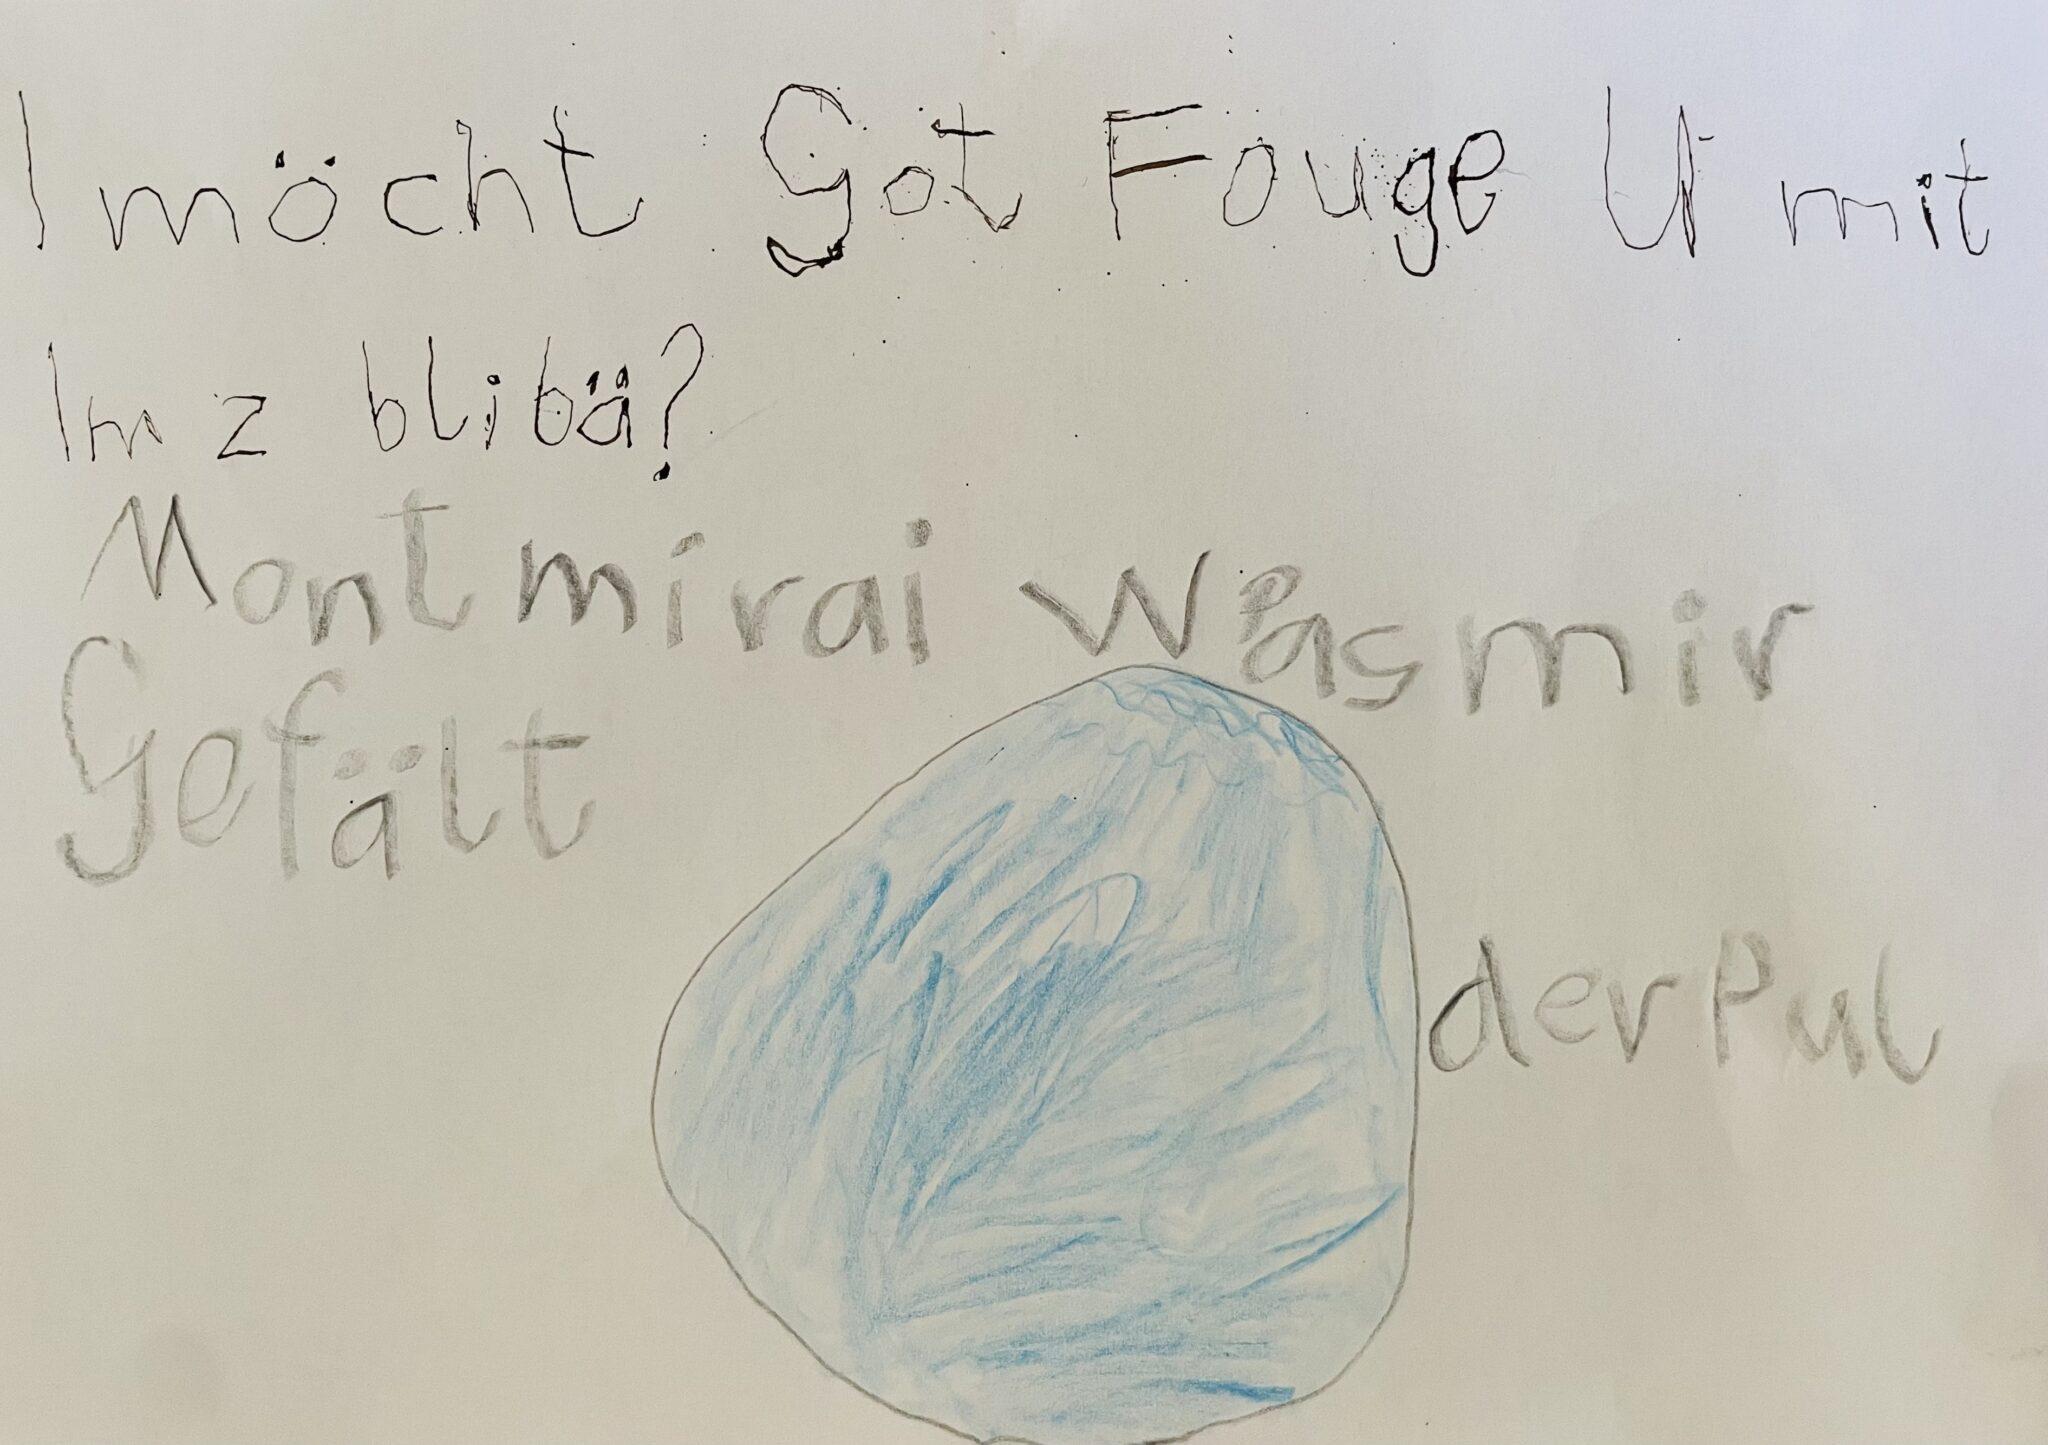 I möcht Got Fouge U mit
Im z blibä?
Montmirai Wasmir
Gefält
der Pul